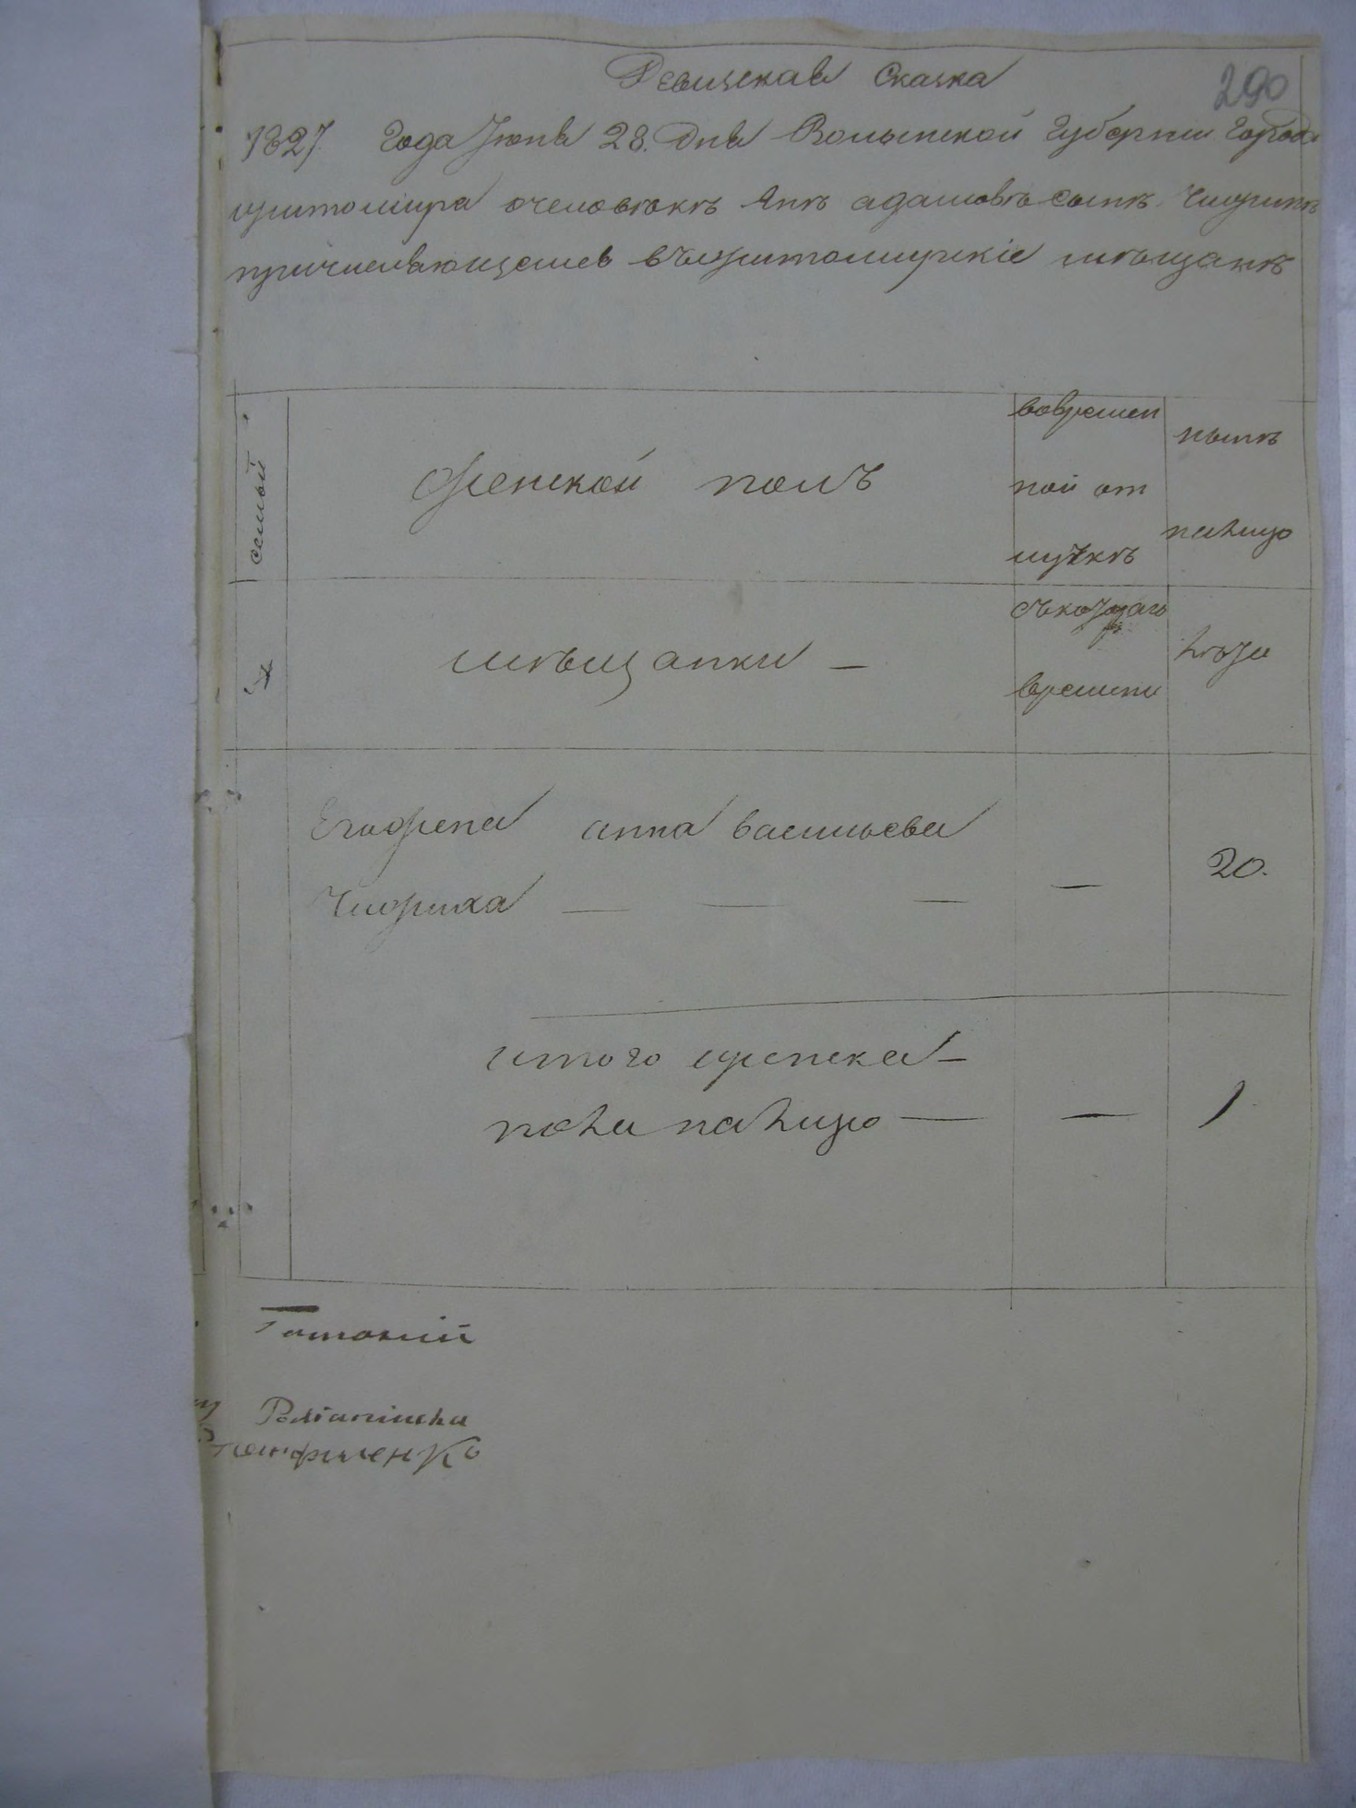 Ревизская Сказка
290
1827 Года Июня 28. Дня Волынской Губернии Города
житомира очеловѣкѣ Янѣ адамовѣ сынѣ Чижикѣ
причисляющемся вжитомирские мѣщанѣ
семьи
женской полъ
вовремен
ной от
лучкѣ
нынѣ
налицо
мѣщанки —
съкотораго
времени
лѣта
Егожена анна васильева
Чижика — — —
—
20.
итого женска —
пола налицо —
—
1